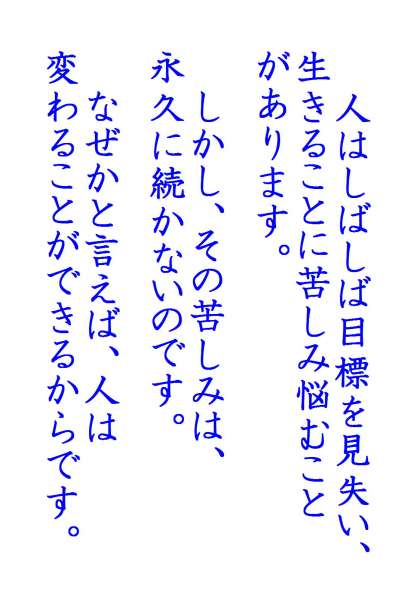 人はしばしば目標を見失い、
生きることに苦しみ悩むこと
があります。
しかし、その苦しみは、
永久に続かないのです。
なぜかと言えば、人は
変わることができるからです。